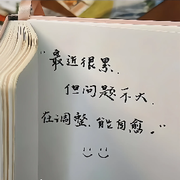 "最近很累,
但问题不大,
在调整,能自愈。"